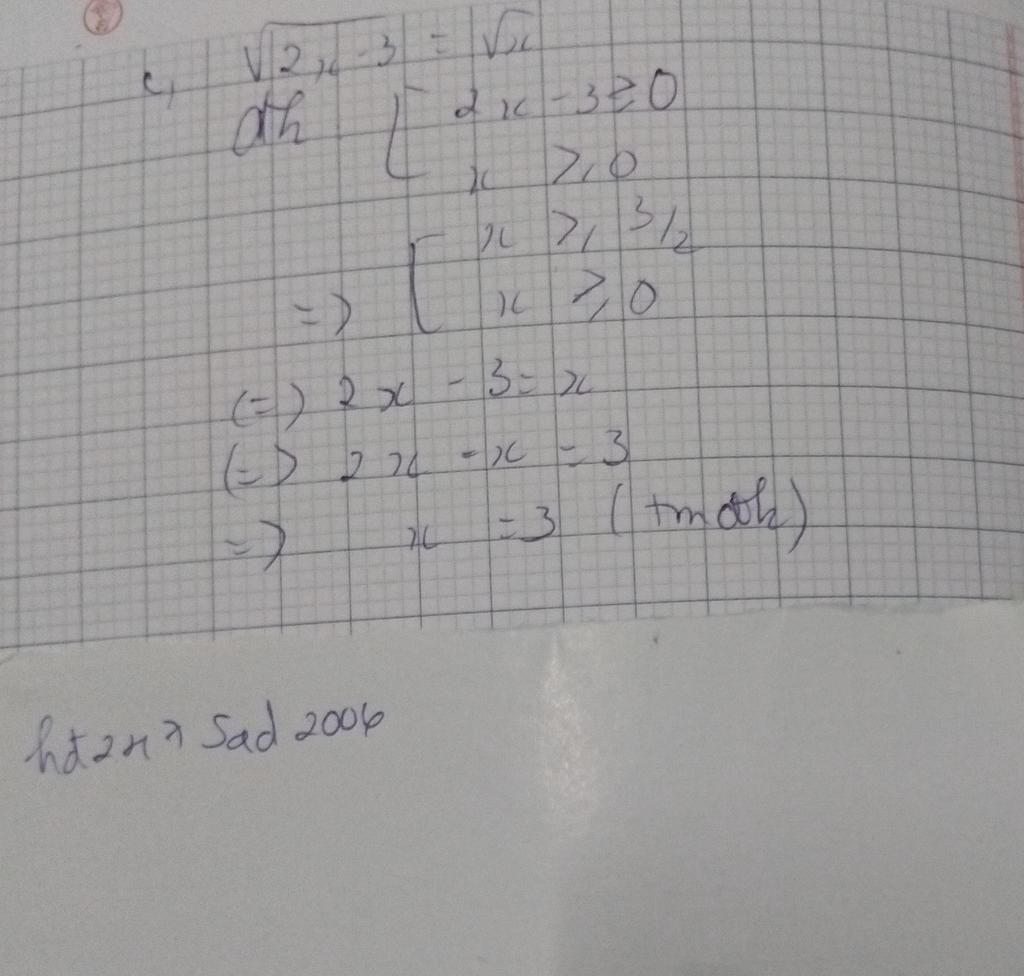 c, √2x-3 = √x
đk [ 2x - 3 ≥ 0
x ≥ 0
=> [ x ≥ 3/2
x ≥ 0
(=) 2x - 3 = x
(=) 2x - x = 3
=> x = 3 (tm đk)
Sad 2006